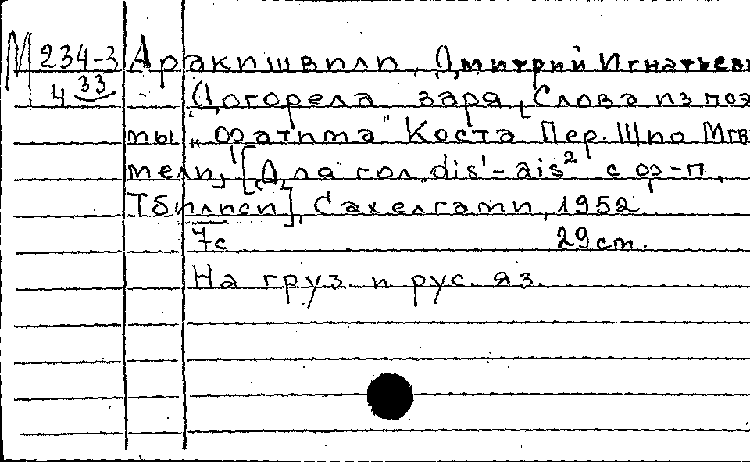 М 234-3 Аракишвили, Дмитрий Игнатьеви
4 33 Догорела заря, Слова из поэ
мы "Фатима" Коста Пер. Шио Мгв
мели, [Для гол. dis'-ais² с ф-п.
Тбилиси], Сахелгами, 1952
7с 29 cm.
На груз. и рус. яз.